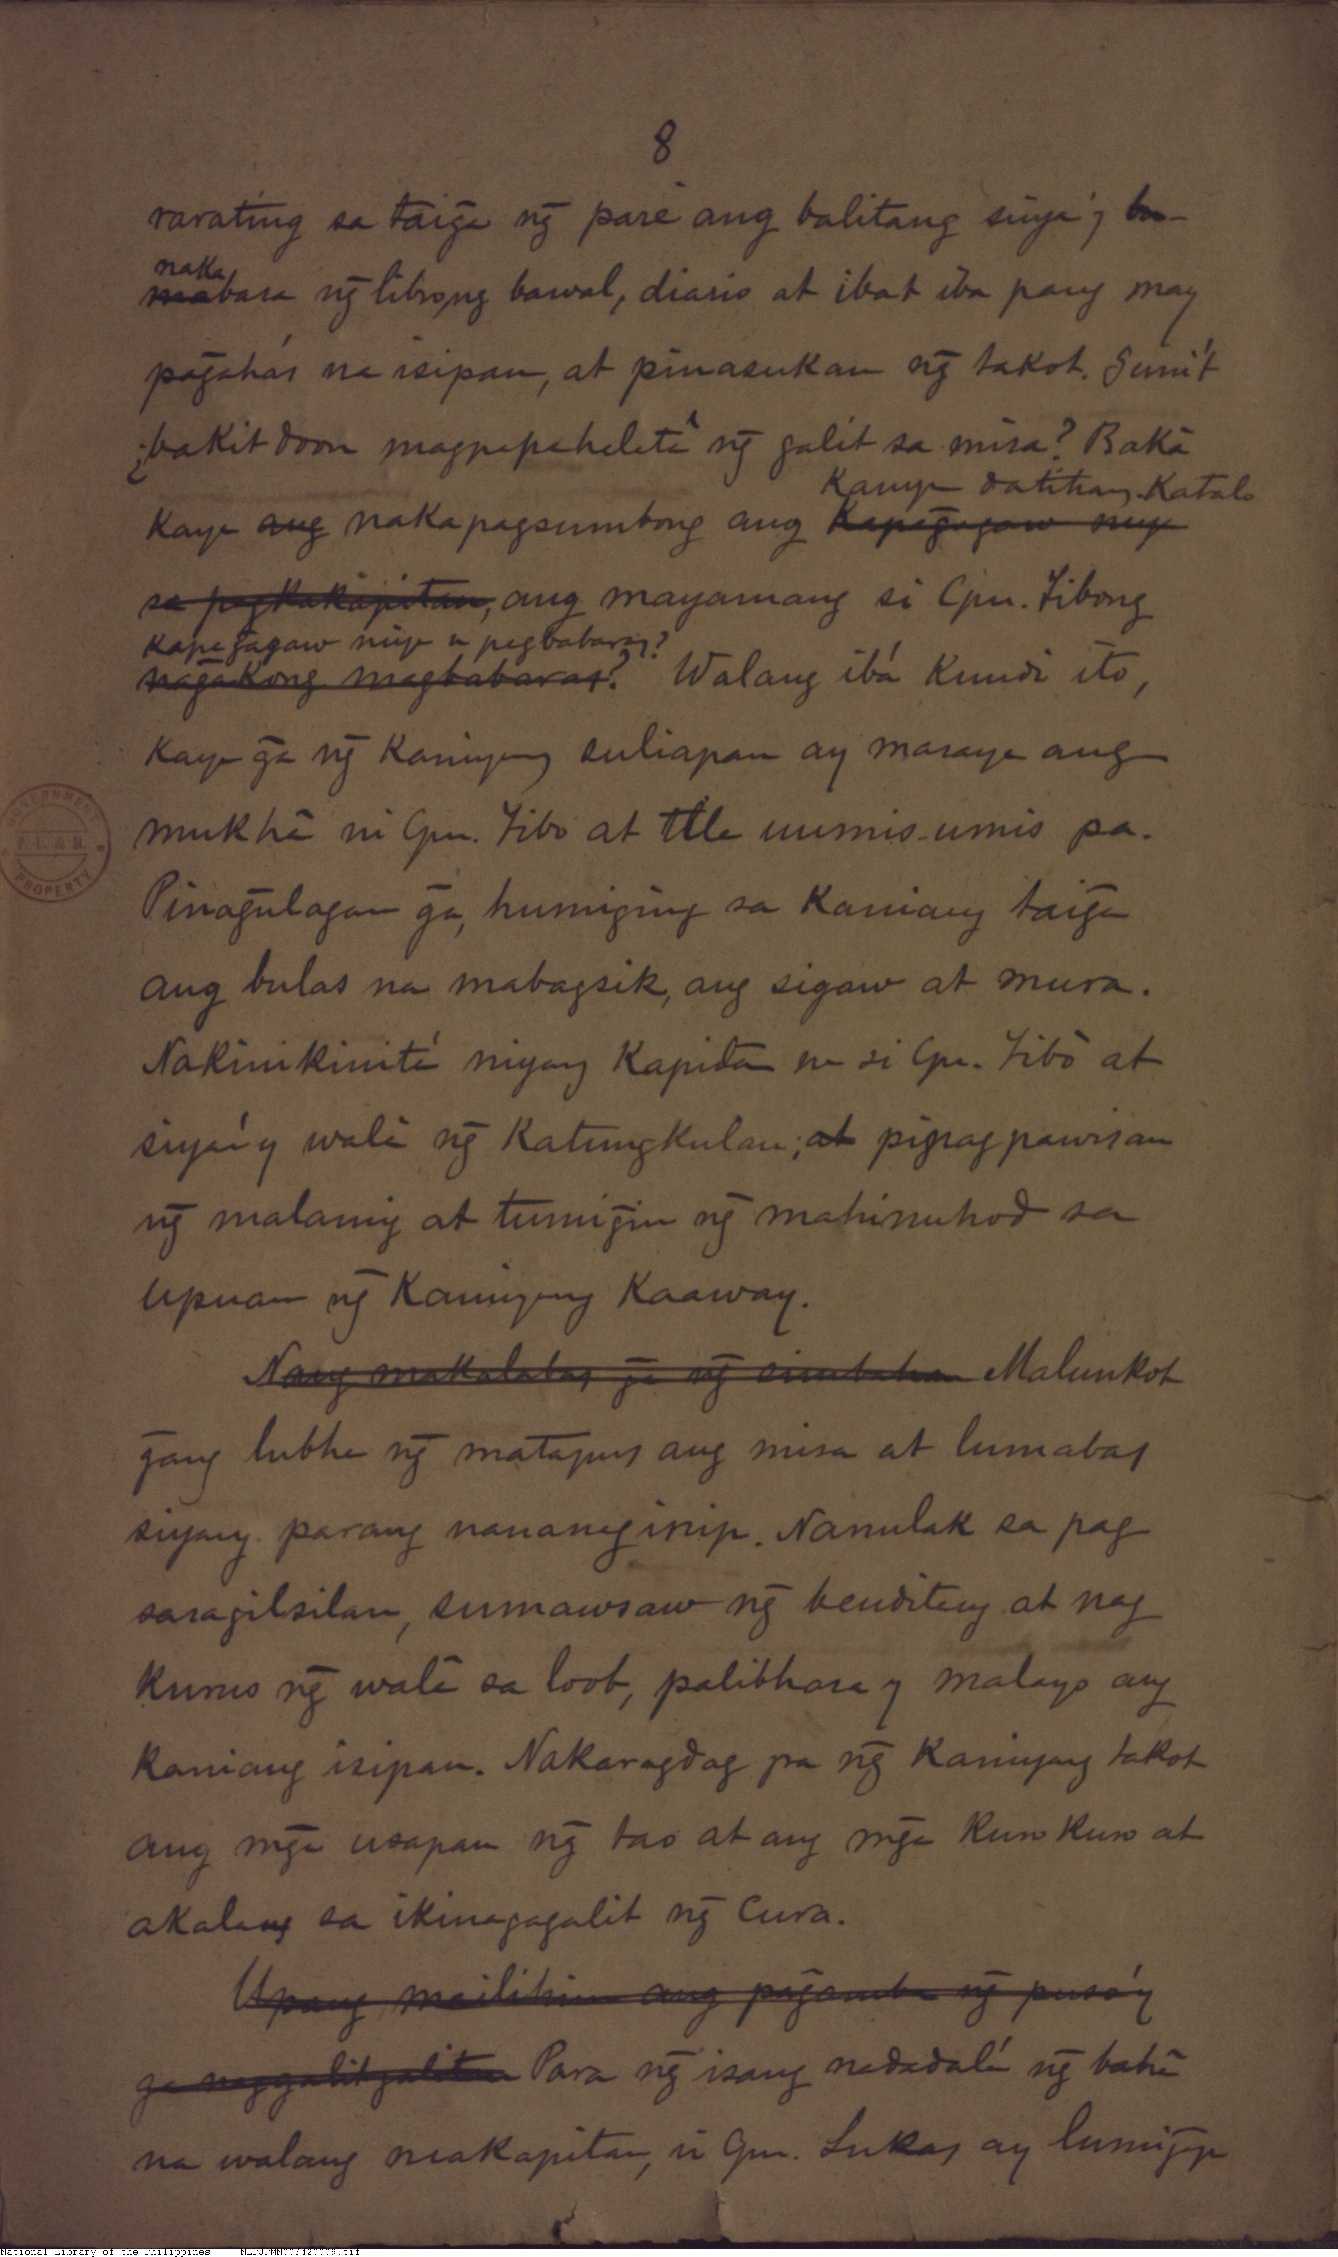 8
rarating sa taig̃a ng̃ pare ang balitang siya'y bu-
naka
mabasa ng̃ librong bawal, diario at ibat iba pang may
pag̃ahás na isipan, at pinasukan ng̃ takot. Gunit
¿bakit doon magpapahalatâ ng̃ galit sa misa? Bakâ
kanya datihang Katalo
kaya ang nakapagsumbong ang kapag̃agaw niya
sa pagkakapitan, ang mayamang si Cpn. Tibong
kapag̃agaw niya sa pagbabaras?
nag̃akong magbabaras? Walang ibá kundi ito,
kaya g̃a ng̃ kaniyang suliapan ay masaya ang
mukhâ ni Cpn. Tibo at tila uumis-umis pa.
Pinag̃ulagan g̃a, humiging sa kaniang taig̃a
ang bulas na mabagsik, ang sigaw at mura.
Nakinikinitá niyang Kapitan na si Cpn. Tibò at
siyaí y walâ ng̃ Katungkulan; at pinagpawisan
ng̃ malamig at tumig̃in ng̃ mahinuhod sa
upuan ng̃ Kaniyang Kaaway.
Nang makalabas g̃a ng̃ simbahan Malunkot
g̃ang lubha ng̃ matapus ang misa at lumabas
siyang parang nananaginip. Nanulak sa pag
saragilsilan, sumawsaw ng̃ benditang at nag
kurus ng̃ walâ sa loob, palibhasa y malayo ang
kaniang isipan. Nakaragdag pa ng̃ Kaniyang takot
ang mg̃a usapan ng̃ tao at ang mg̃a kuro kuro at
akalang sa ikinagagalit ng̃ Cura.
Upang mailihim ang pag̃amba ng̃ pusó'y
ga naggalitgalitan Para ng̃ isang nadadalá ng̃ bahâ
na walang makapitan, si Cpn. Lukas ay lumig̃ap
GOVERNMENT
P. L. & M.
PROPERTY
National Library of the Philippines